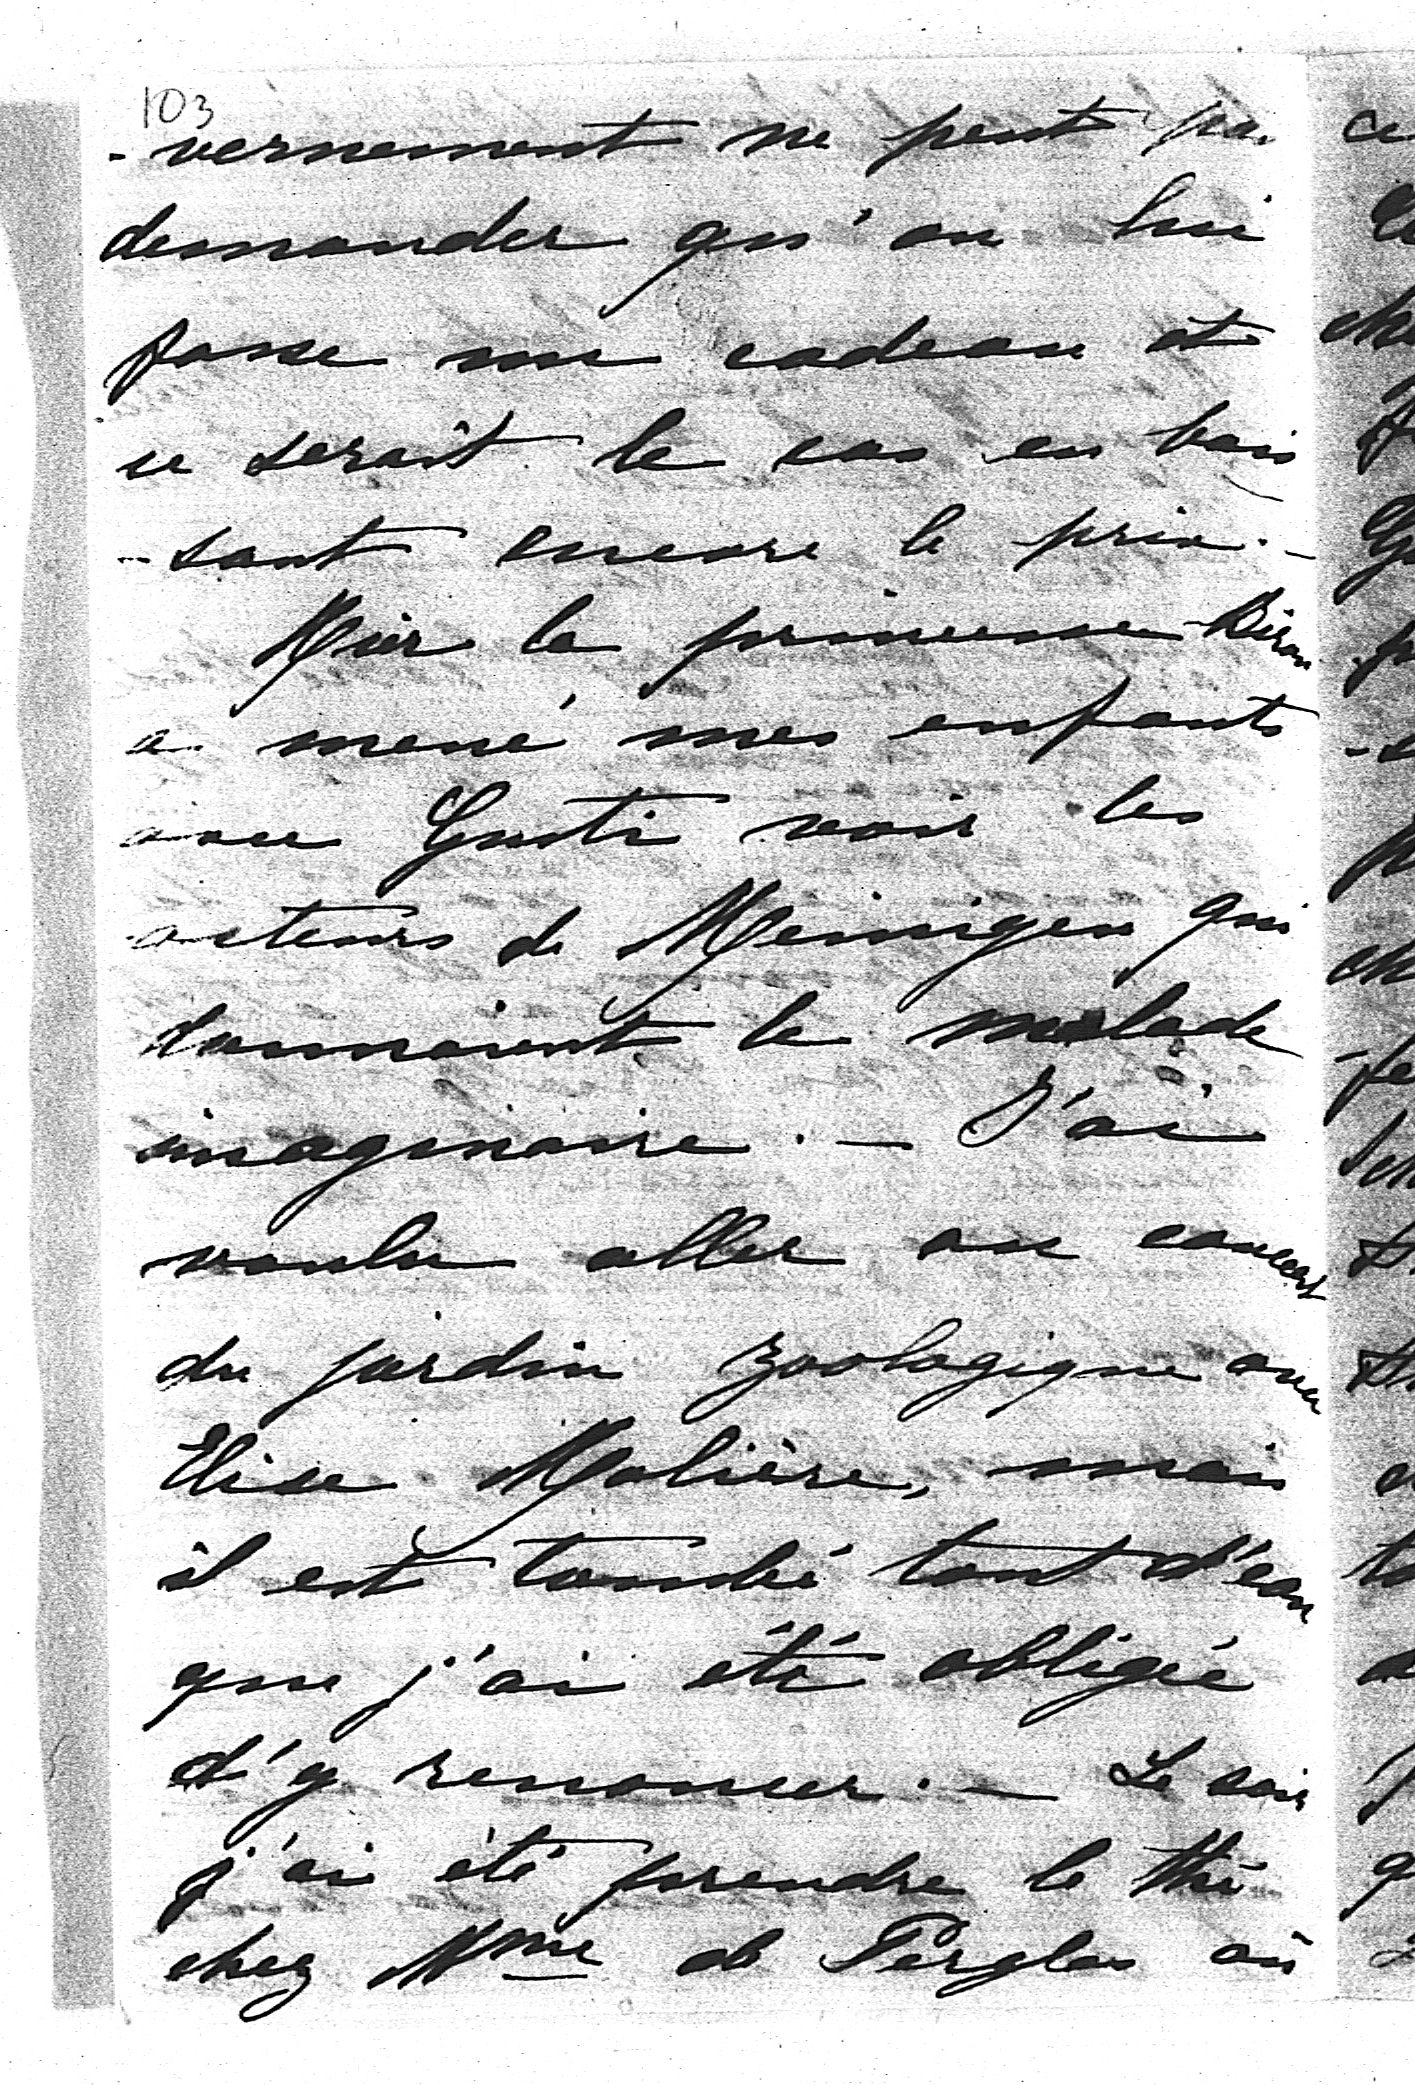 103
- vernement ne peut pas
demander qu'on lui
fasse un cadeau et
ce serait le cas en bais
- sant encore le prix. -
Hier la princesse Biron
a mené mes enfants
avec Gusti voir les
acteurs de Meiningen qui
donnaient le malade
imaginaire. - J'ai
voulu aller au concert
du jardin zoologique avec
Elise Molière, mais
il est tombé tant d'eau
que j'ai été obligée
d'y renoncer. - Le soir
j'ai été prendre le thé
chez Mme de Perglas où